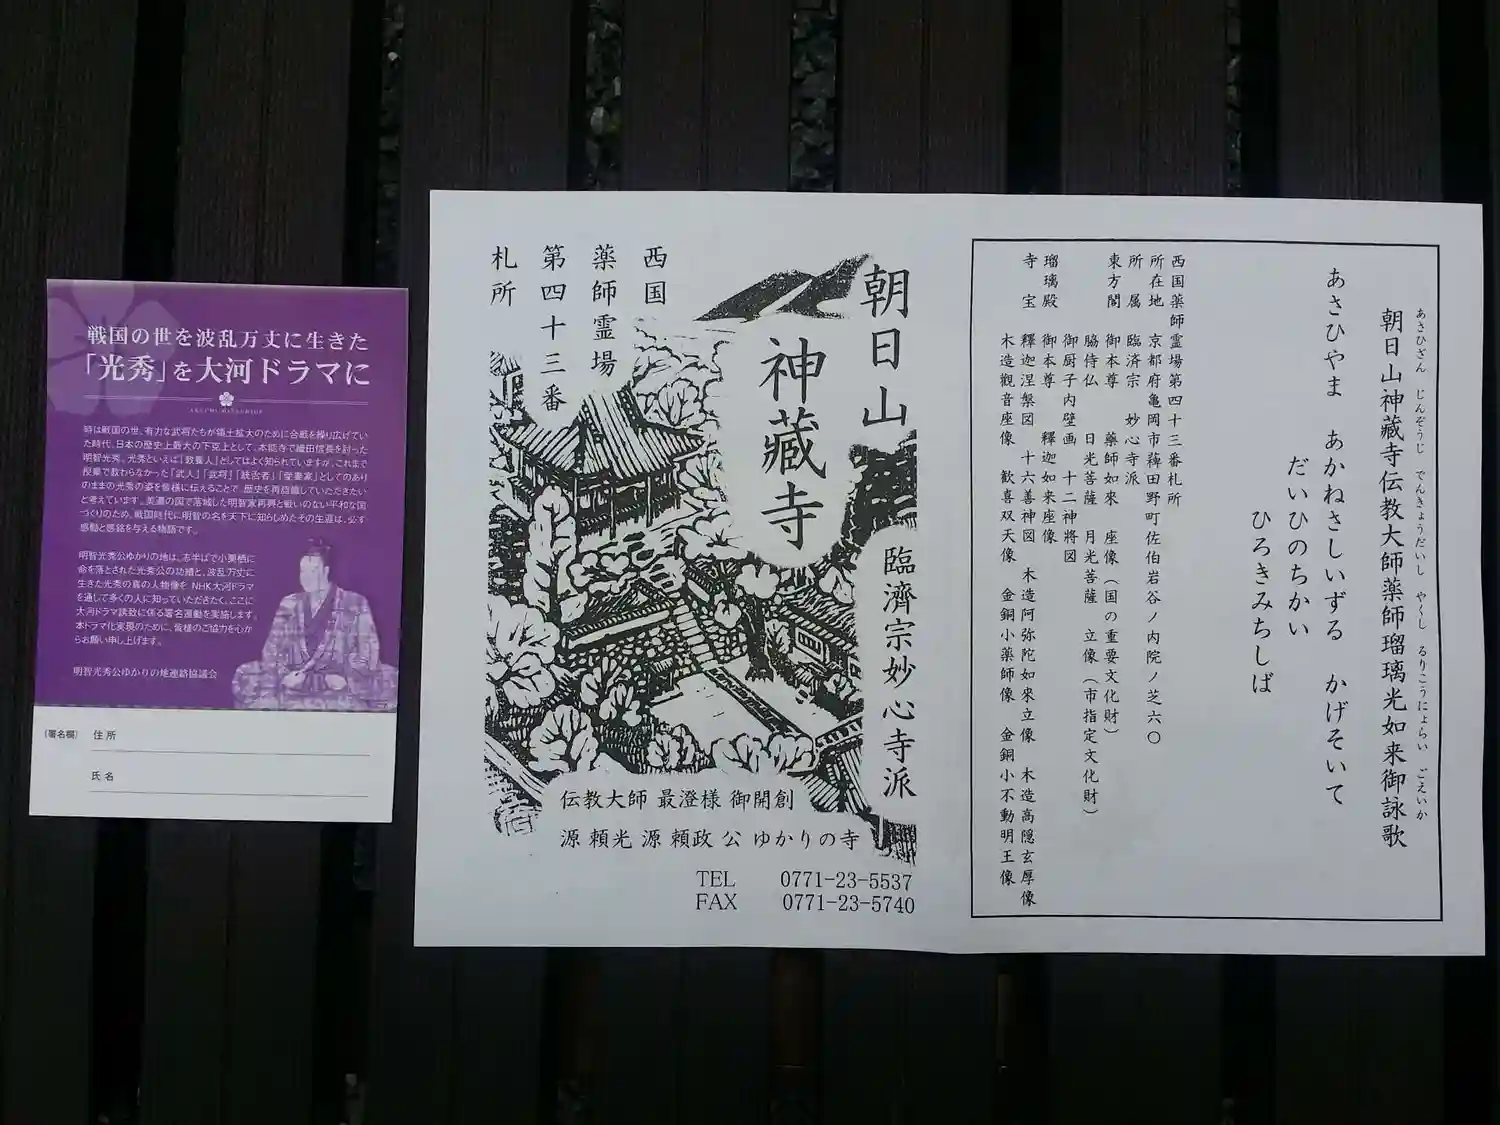 戦国の世を波乱万丈に生きた
「光秀」を大河ドラマに
AKECHI MITSUHIDE
時は戦国の世、有力な武将たちが領土拡大のために合戦を繰り広げてい
た時代、日本の歴史上最大の下克上として、本能寺で織田信長を討った
明智光秀。光秀といえば「教養人」としてはよく知られていますが、これまで
授業で教わらなかった「武人」「武将」「統治者」「愛妻家」としてのあり
のままの光秀の姿を皆様に伝えることで、歴史を再認識していただきたい
と考えています。美濃の国で落城した明智家再興と戦いのない平和な国
づくりのため、戦国時代に明智の名を天下に知らしめたその生涯は、必ず
感動と感銘を与える物語です。
明智光秀公ゆかりの地は、志半ばで小栗栖に
命を落とされた光秀公の功績と、波乱万丈に
生きた光秀の真の人物像を NHK大河ドラマ
を通して多くの人に知っていただきたく、ここに
大河ドラマ誘致に係る署名運動を実施します。
本ドラマ化実現のために、皆様のご協力を心か
らお願い申し上げます。
明智光秀公ゆかりの地連絡協議会
(署名欄) 住所
氏名
朝日山
神藏寺
臨濟宗妙心寺派
西国
薬師霊場
第四十三番
札所
伝教大師 最澄様 御開創
源 頼光 源 頼政 公 ゆかりの寺
TEL 0771-23-5537
FAX 0771-23-5740
あさひざん じんぞうじ でんきょうだいし やくし るりこうにょらい ごえいか
朝日山神藏寺伝教大師薬師瑠璃光如来御詠歌
あさひやま あかねさしいずる かげそいて
だいひのちかい
ひろきみちしば
西国薬師霊場第四十三番札所
所在地 京都府亀岡市薭田野町佐伯岩谷ノ内院ノ芝六〇
所属 臨済宗 妙心寺派
東方閣 御本尊 薬師如來 座像(国の重要文化財)
脇侍仏 日光菩薩 月光菩薩 立像(市指定文化財)
御厨子内壁画 十二神將図
瑠璃殿 御本尊 釋迦如来座像
寺宝 釋迦涅槃図 十六善神図 木造阿弥陀如來立像 木造高隠玄厚像
木造觀音座像 歓喜双天像 金銅小薬師像 金銅小不動明王像